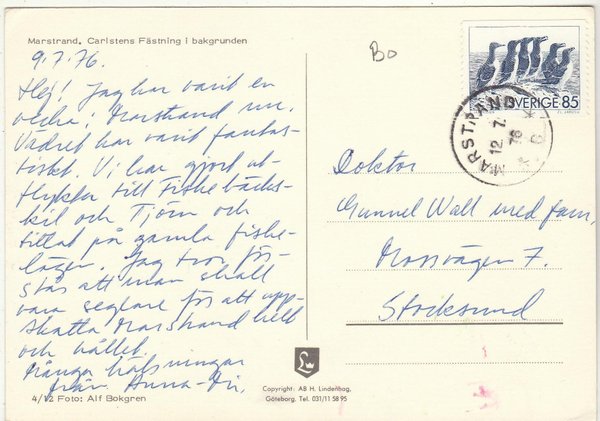 Marstrand, Carlstens Fästning i bakgrunden
9.7.76.
Hej! Jag har varit en
vecka i Marstrand nu.
Vädret har varit fantas-
tiskt. Vi har gjort ut-
flykter till Fiskebäcks-
kil och Tjörn och
tittat på gamla fiske-
lägen. Jag tror för-
stås att man skall
vara seglare för att upp-
skatta Marstrand helt
och hållet.
Många hälsningar
från Anna-
4/12 Foto: Alf Bokgren
Bo
SVERIGE 85
MARSTRAND
12.7.
76
Doktor
Gunnel Wall med fam,
Mossvägen 7.
Stocksund
Copyright: AB H. Lindenhag,
Göteborg. Tel. 031/11 58 95